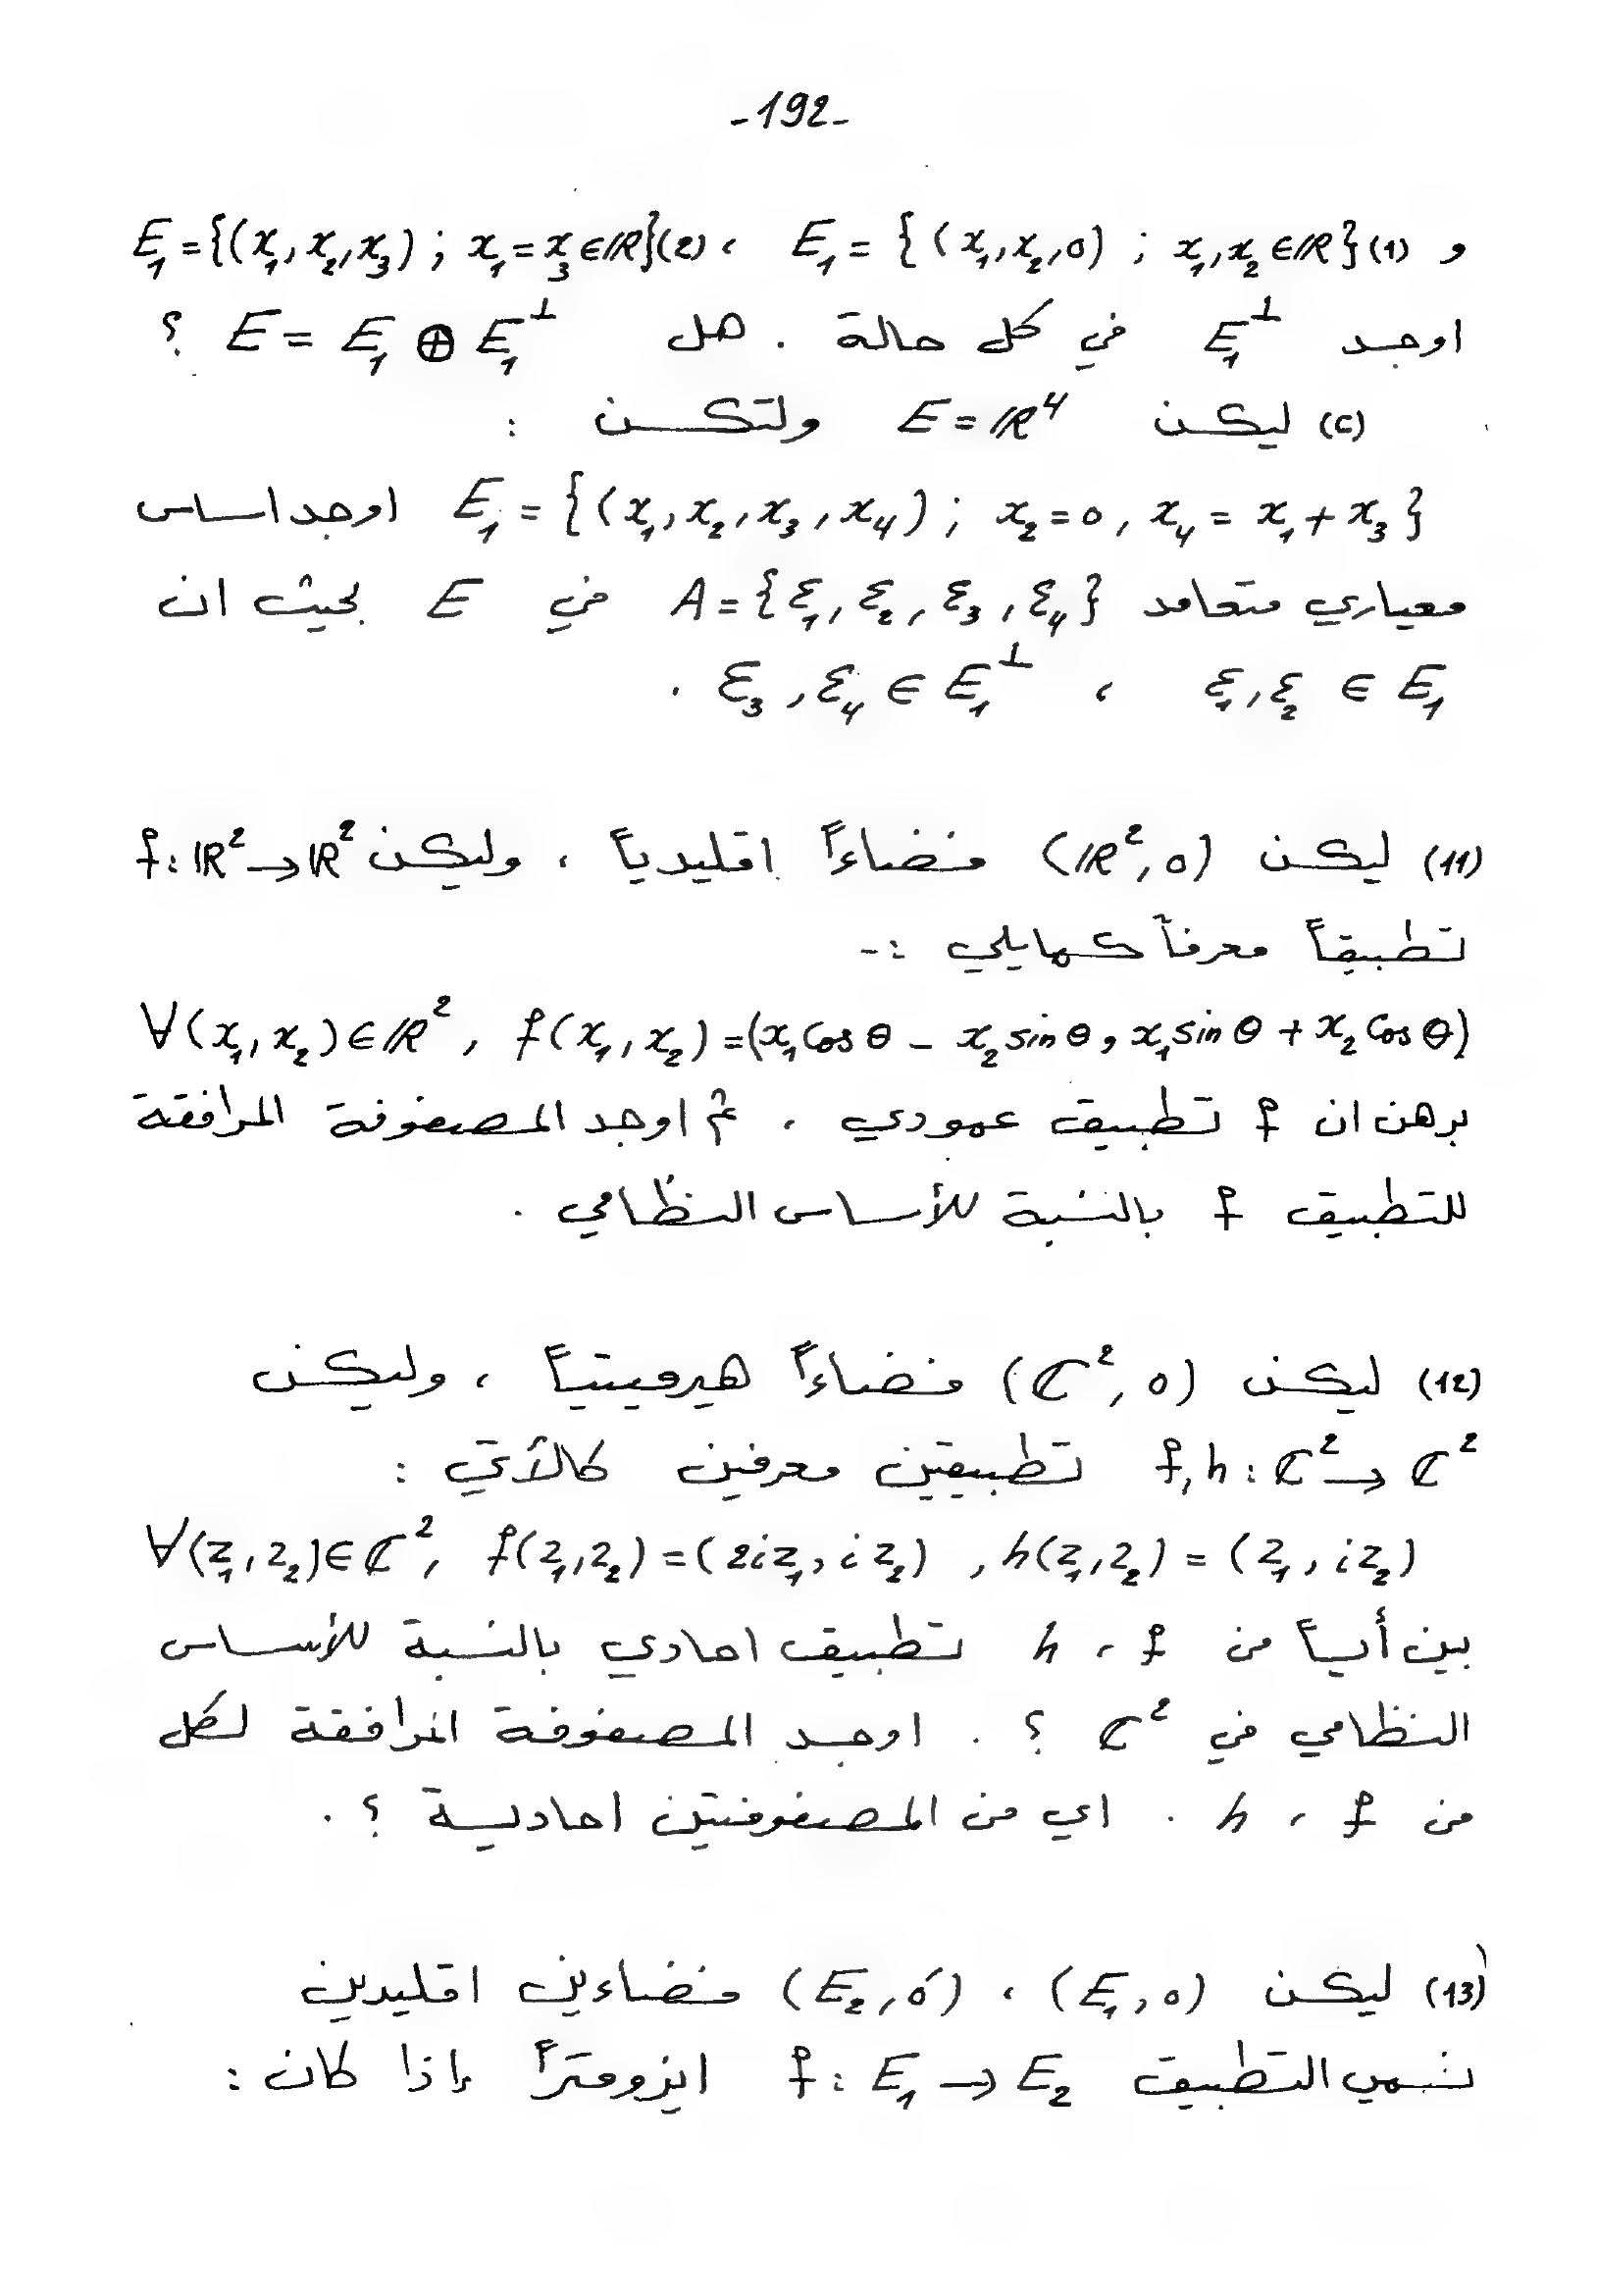 -192-
و (1) E₁ = { (x₁, x₂, 0) ; x₁, x₂ ∈ ℝ } ، (2) E₁ = {(x₁, x₂, x₃) ; x₁ = x₃ ∈ ℝ}
اوجد E₁^⊥ في كل حالة . هل E = E₁ ⊕ E₁^⊥ ؟
(c) ليكن E = ℝ⁴ ولتكن :
E₁ = {(x₁, x₂, x₃, x₄) ; x₂ = 0, x₄ = x₁ + x₃} اوجد اساس
معياري متعامد A = {ε₁, ε₂, ε₃, ε₄} في E بحيث ان
ε₁, ε₂ ∈ E₁ ، ε₃, ε₄ ∈ E₁^⊥ .
(11) ليكن (ℝ², o) فضاءاً اقليدياً ، وليكن f : ℝ² → ℝ²
تطبيقاً معرفاً كمايلي :-
∀(x₁, x₂) ∈ ℝ² , f(x₁, x₂) = (x₁ cos θ − x₂ sin θ , x₁ sin θ + x₂ cos θ)
برهن ان f تطبيق عمودي ، ثم اوجد المصفوفة المرافقة
للتطبيق f بالنسبة للأساس النظامي .
(12) ليكن (ℂ², o) فضاءاً هيرميتياً ، وليكن
f, h : ℂ² → ℂ² تطبيقين معرفين كالآتي :
∀(z₁, z₂) ∈ ℂ² , f(z₁, z₂) = (2iz₁, iz₂) , h(z₁, z₂) = (z₁, iz₂)
بين أياً من f ، h تطبيق احادي بالنسبة للأساس
النظامي في ℂ² ؟ . اوجد المصفوفة المرافقة لكل
من f ، h . اي من المصفوفتين احادية ؟ .
(13) ليكن (E₁, o) ، (E₂, o′) فضاءين اقليدين
نسمي التطبيق f : E₁ → E₂ ايزومتراً إذا كان :